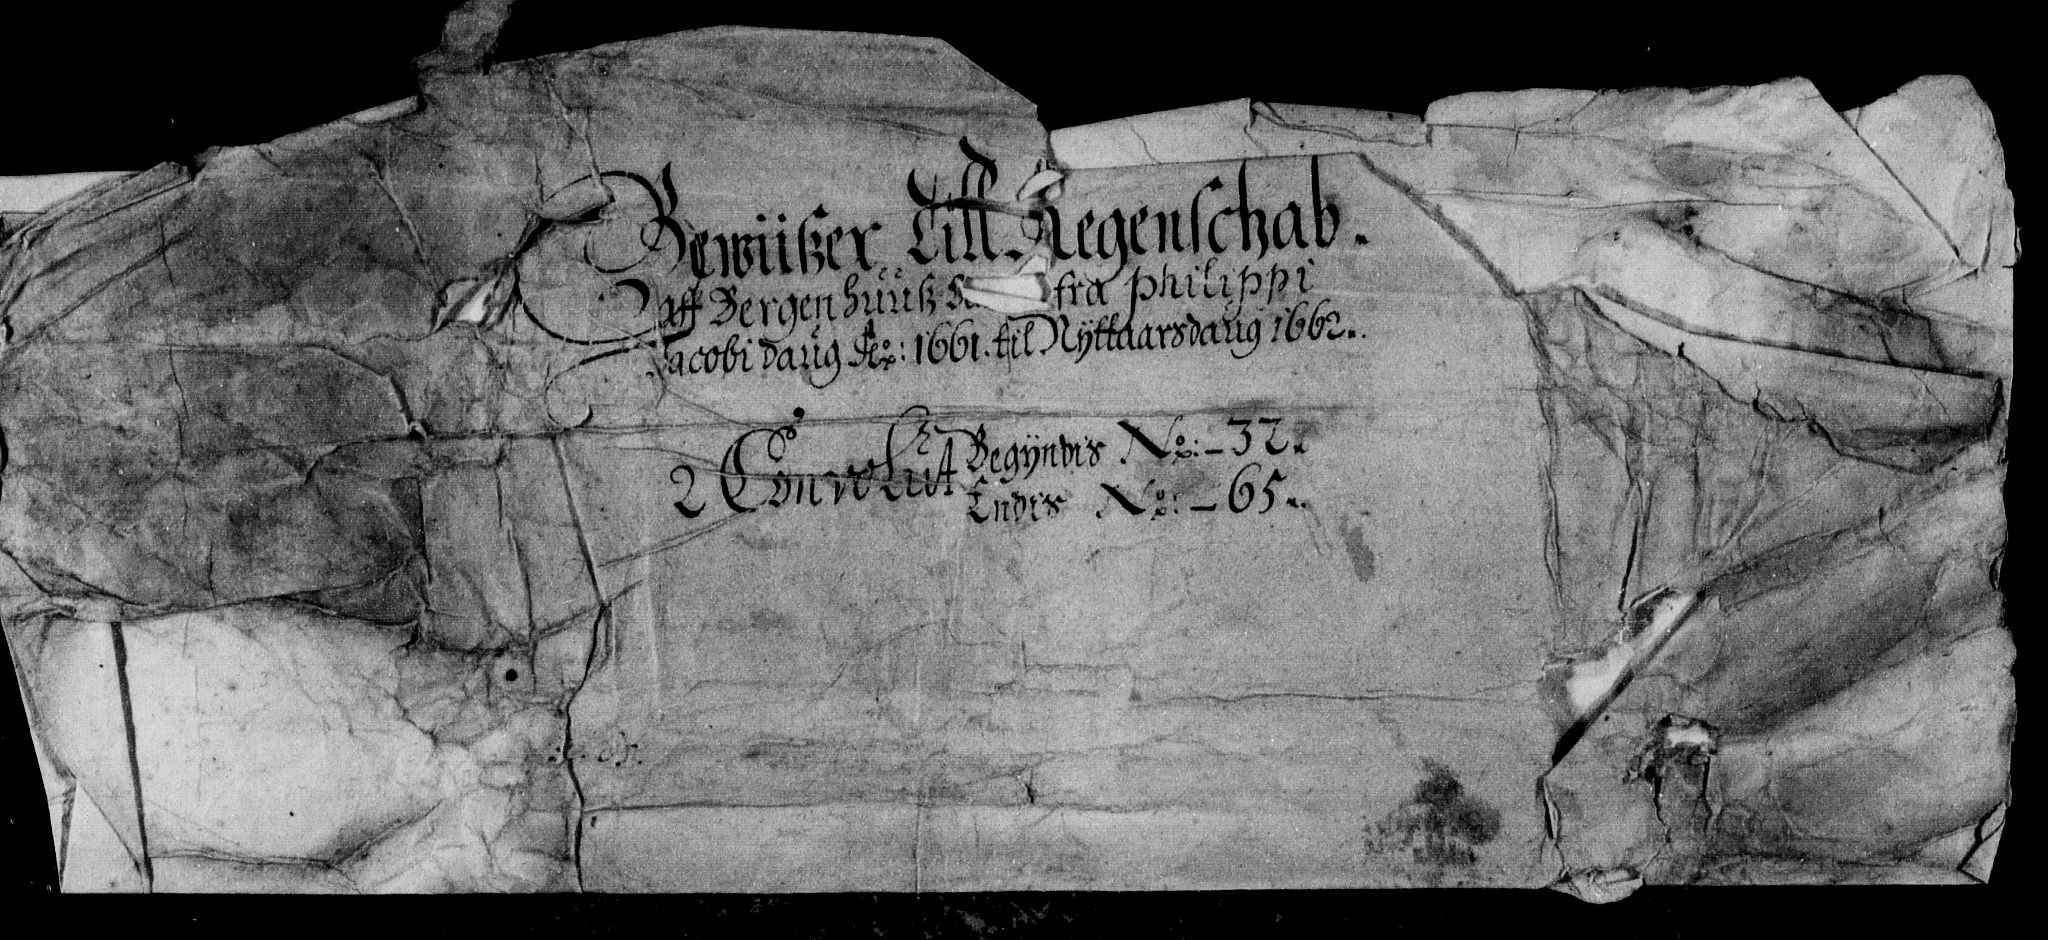 Bewüszer Till Regenschab.
aff Bergenhüüsz fra Philippi
Jacobi daug Ao: 1661. til Nÿttaarsdaug 1662.
2 Convolut Begÿndis No: - 32.
Endis No: - 65.